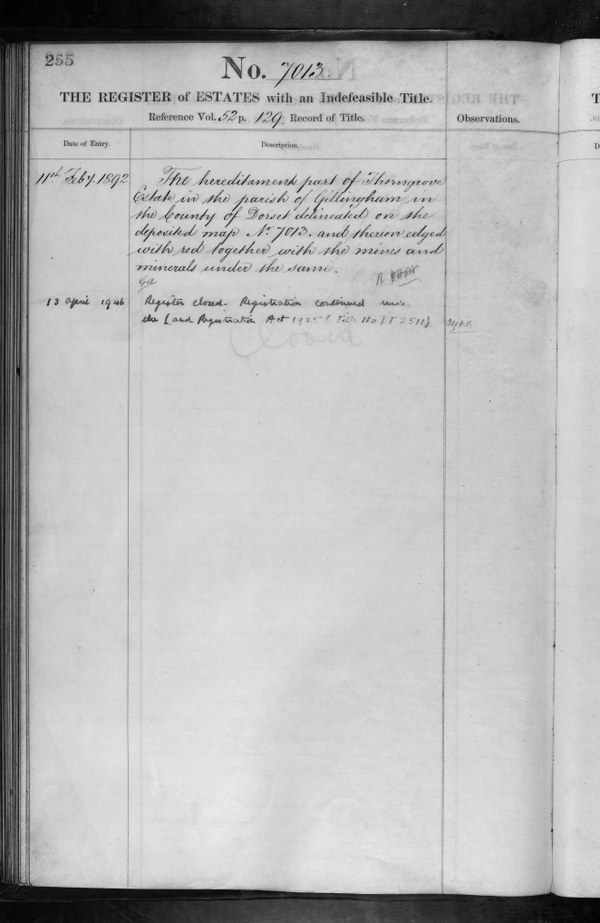 255
No. 7013
THE REGISTER of ESTATES with an Indefeasible Title.
Reference Vol. 52 p. 129. Record of Title.
Observations.
Date of Entry.
Description.
11th Feby. 1892
The hereditaments part of Thorngrove
Estate in the parish of Gillingham in
the County of Dorset delineated on the
deposited map No. 7013. and thereon edged
with red together with the mines and
minerals under the same.
13 April 1946
Register closed. Registration continued under
the Land Registration Act 1925 (Title No
Closed
T
D